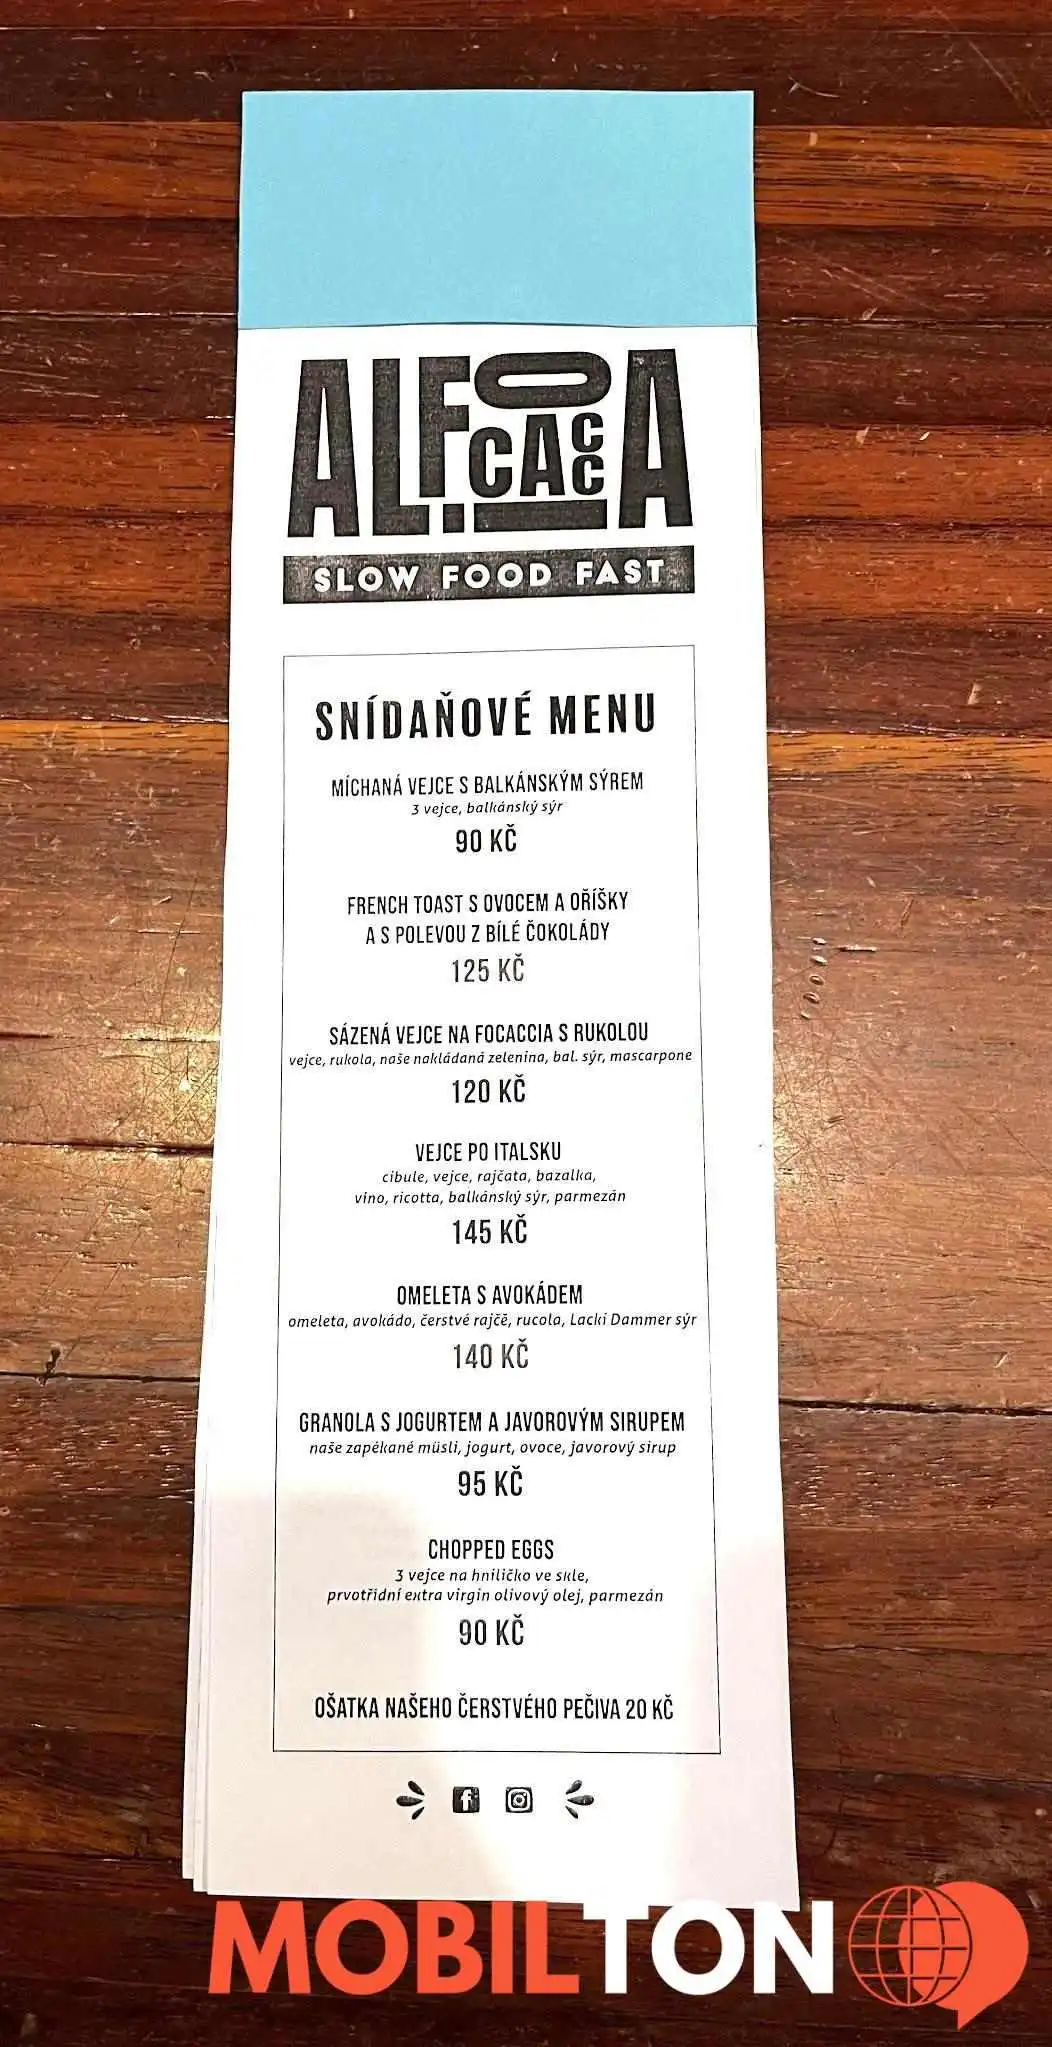 ALFOCACCIA
SLOW FOOD FAST
SNÍDAŇOVÉ MENU
MÍCHANÁ VEJCE S BALKÁNSKÝM SÝREM
3 vejce, balkánský sýr
90 KČ
FRENCH TOAST S OVOCEM A OŘÍŠKY
A S POLEVOU Z BÍLÉ ČOKOLÁDY
125 KČ
SÁZENÁ VEJCE NA FOCACCIA S RUKOLOU
vejce, rukola, naše nakládaná zelenina, bal. sýr, mascarpone
120 KČ
VEJCE PO ITALSKU
cibule, vejce, rajčata, bazalka,
víno, ricotta, balkánský sýr, parmezán
145 KČ
OMELETA S AVOKÁDEM
omeleta, avokádo, čerstvé rajčě, rucola, Lacki Dammer sýr
140 KČ
GRANOLA S JOGURTEM A JAVOROVÝM SIRUPEM
naše zapékané müsli, jogurt, ovoce, javorový sirup
95 KČ
CHOPPED EGGS
3 vejce na hniličko ve skle,
prvotřídní extra virgin olivový olej, parmezán
90 KČ
OŠATKA NAŠEHO ČERSTVÉHO PEČIVA 20 KČ
MOBILTON